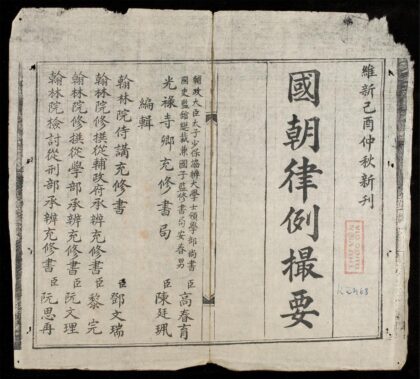 維新己酉仲秋新刊
國朝律例撮要
輔政大臣太子少保協辨大學士領學部尚書
國史監館總裁兼國子監修書局安春男 臣 高春育
光祿寺卿充修書局 臣 陳廷珮
編輯
翰林院侍講充修書 臣 鄧文瑞
翰林院修撰從輔政府承辨充修書 臣 黎完
翰林院修撰從學部承辨充修書 臣 阮文理
翰林院檢討從刑部承辨充修書 臣 阮思再